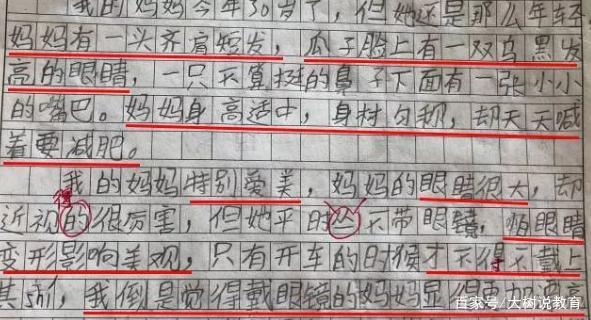 我的妈妈今年30岁了，但她还是那么年轻
妈妈有一头齐肩短发，瓜子脸上有一双乌黑发
亮的眼睛，一只不算挺的鼻子下面有一张小小
的嘴巴。妈妈身高适中，身材匀称，却天天喊
着要减肥。
我的妈妈特别爱美，妈妈的眼睛很大，却
得
近视的很厉害，但她平时不带眼镜，怕眼睛
变形影响美观，只有开车的时候才不得不戴上
我倒是觉得戴眼镜的妈妈显得更加
百家号/大树说教育